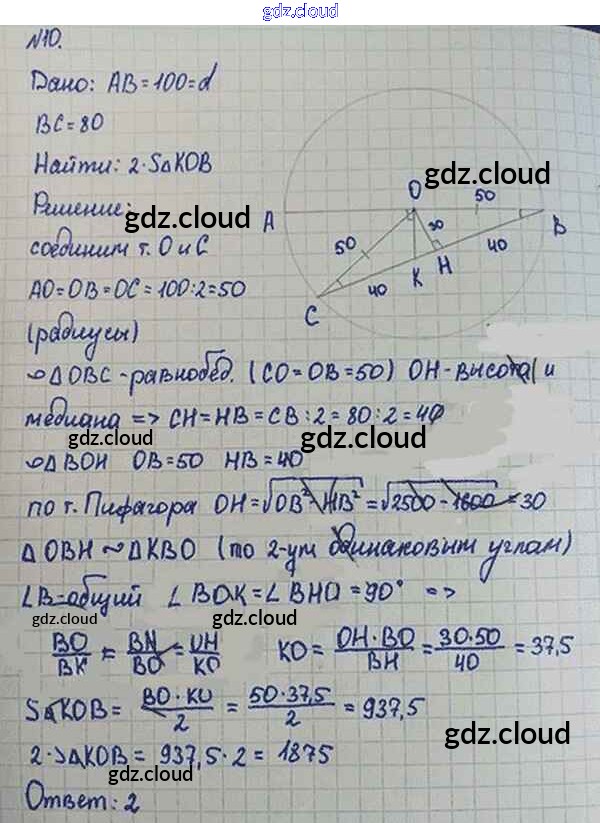 gdz.cloud
№10.
Дано: AB=100=d
BC=80
Найти: 2·S△KOB
Решение:
соединим т. O и C
AO=OB=OC=100:2=50
(радиусы)
△OBC-равнобед. (CO=OB=50) OH-высота и
медиана => CH=HB=CB:2=80:2=40
△BOH OB=50 HB=40
по т. Пифагора OH=√OB²-HB²=√2500-1600=30
△OBH~△KBO (по 2-ум одинаковым углам)
∠B-общий ∠BOK=∠BHO=90° =>
BO/BK=BH/BO=OH/KO KO=OH·BO/BH=30·50/40=37,5
S△KOB=BO·KO/2=50·37,5/2=937,5
2·S△KOB=937,5·2=1875
Ответ: 2
A
O
50
B
50
30
40
K
H
40
C
gdz.cloud
gdz.cloud
gdz.cloud
gdz.cloud
gdz.cloud
gdz.cloud
gdz.cloud
gdz.cloud
gdz.cloud
gdz.cloud